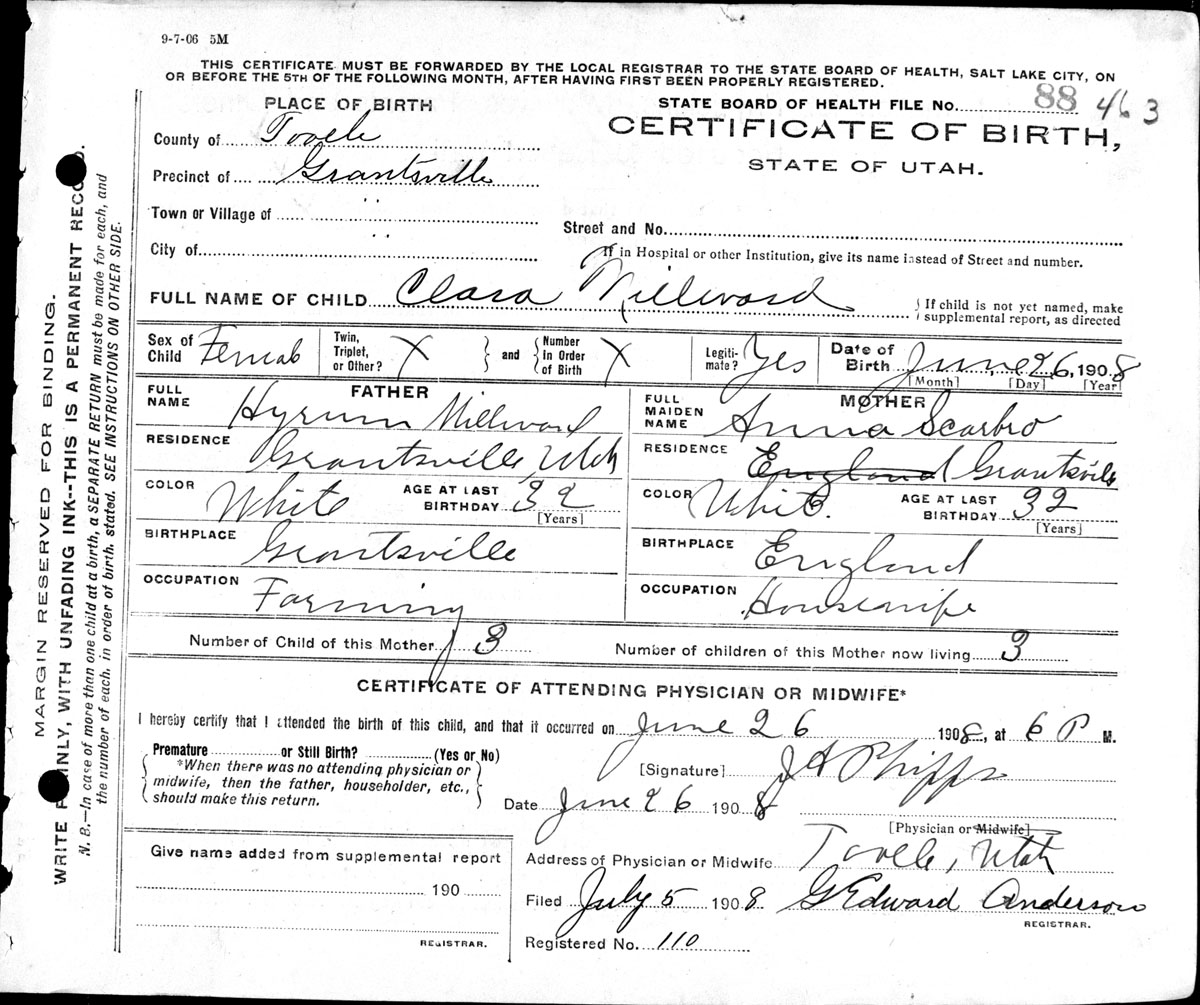 9-7-06 5M
THIS CERTIFICATE MUST BE FORWARDED BY THE LOCAL REGISTRAR TO THE STATE BOARD OF HEALTH, SALT LAKE CITY, ON
OR BEFORE THE 5TH OF THE FOLLOWING MONTH, AFTER HAVING FIRST BEEN PROPERLY REGISTERED.
PLACE OF BIRTH
STATE BOARD OF HEALTH FILE No. 88 463
County of Tooele
CERTIFICATE OF BIRTH,
STATE OF UTAH.
Precinct of Grantsville
Town or Village of "
Street and No.
City of "
If in Hospital or other Institution, give its name instead of Street and number.
FULL NAME OF CHILD Clara Millward
{If child is not yet named, make
supplemental report, as directed
Sex of Child Female Twin, Triplet, or Other? X } and { Number In Order of Birth X Legiti- mate? Yes Date of Birth June 26, 1908
[Month] [Day] [Year]
FATHER
FULL NAME Hyrum Millward
RESIDENCE Grantsville, Utah
COLOR White AGE AT LAST BIRTHDAY 32
[Years]
BIRTHPLACE Grantsville
OCCUPATION Farming
MOTHER
FULL MAIDEN NAME Anna Scarbro
RESIDENCE England Grantsville
COLOR White. AGE AT LAST BIRTHDAY 32
[Years]
BIRTHPLACE England
OCCUPATION Housewife
Number of Child of this Mother 3
Number of children of this Mother now living 3
CERTIFICATE OF ATTENDING PHYSICIAN OR MIDWIFE*
I hereby certify that I attended the birth of this child, and that it occurred on June 26 1908, at 6 P M.
Premature or Still Birth? (Yes or No)
*When there was no attending physician or
midwife, then the father, householder, etc.,
should make this return.
[Signature] J A Phipps
Date June 26 1908
[Physician or Midwife]
Address of Physician or Midwife Tooele, Utah
Filed July 5 1908. G Edward Anderson
REGISTRAR.
Registered No. 110
Give name added from supplemental report
190
REGISTRAR.
MARGIN RESERVED FOR BINDING.
WRITE PLAINLY, WITH UNFADING INK--THIS IS A PERMANENT RECORD.
N. B.—In case of more than one child at a birth, a SEPARATE RETURN must be made for each, and
the number of each, in order of birth, stated. SEE INSTRUCTIONS ON OTHER SIDE.